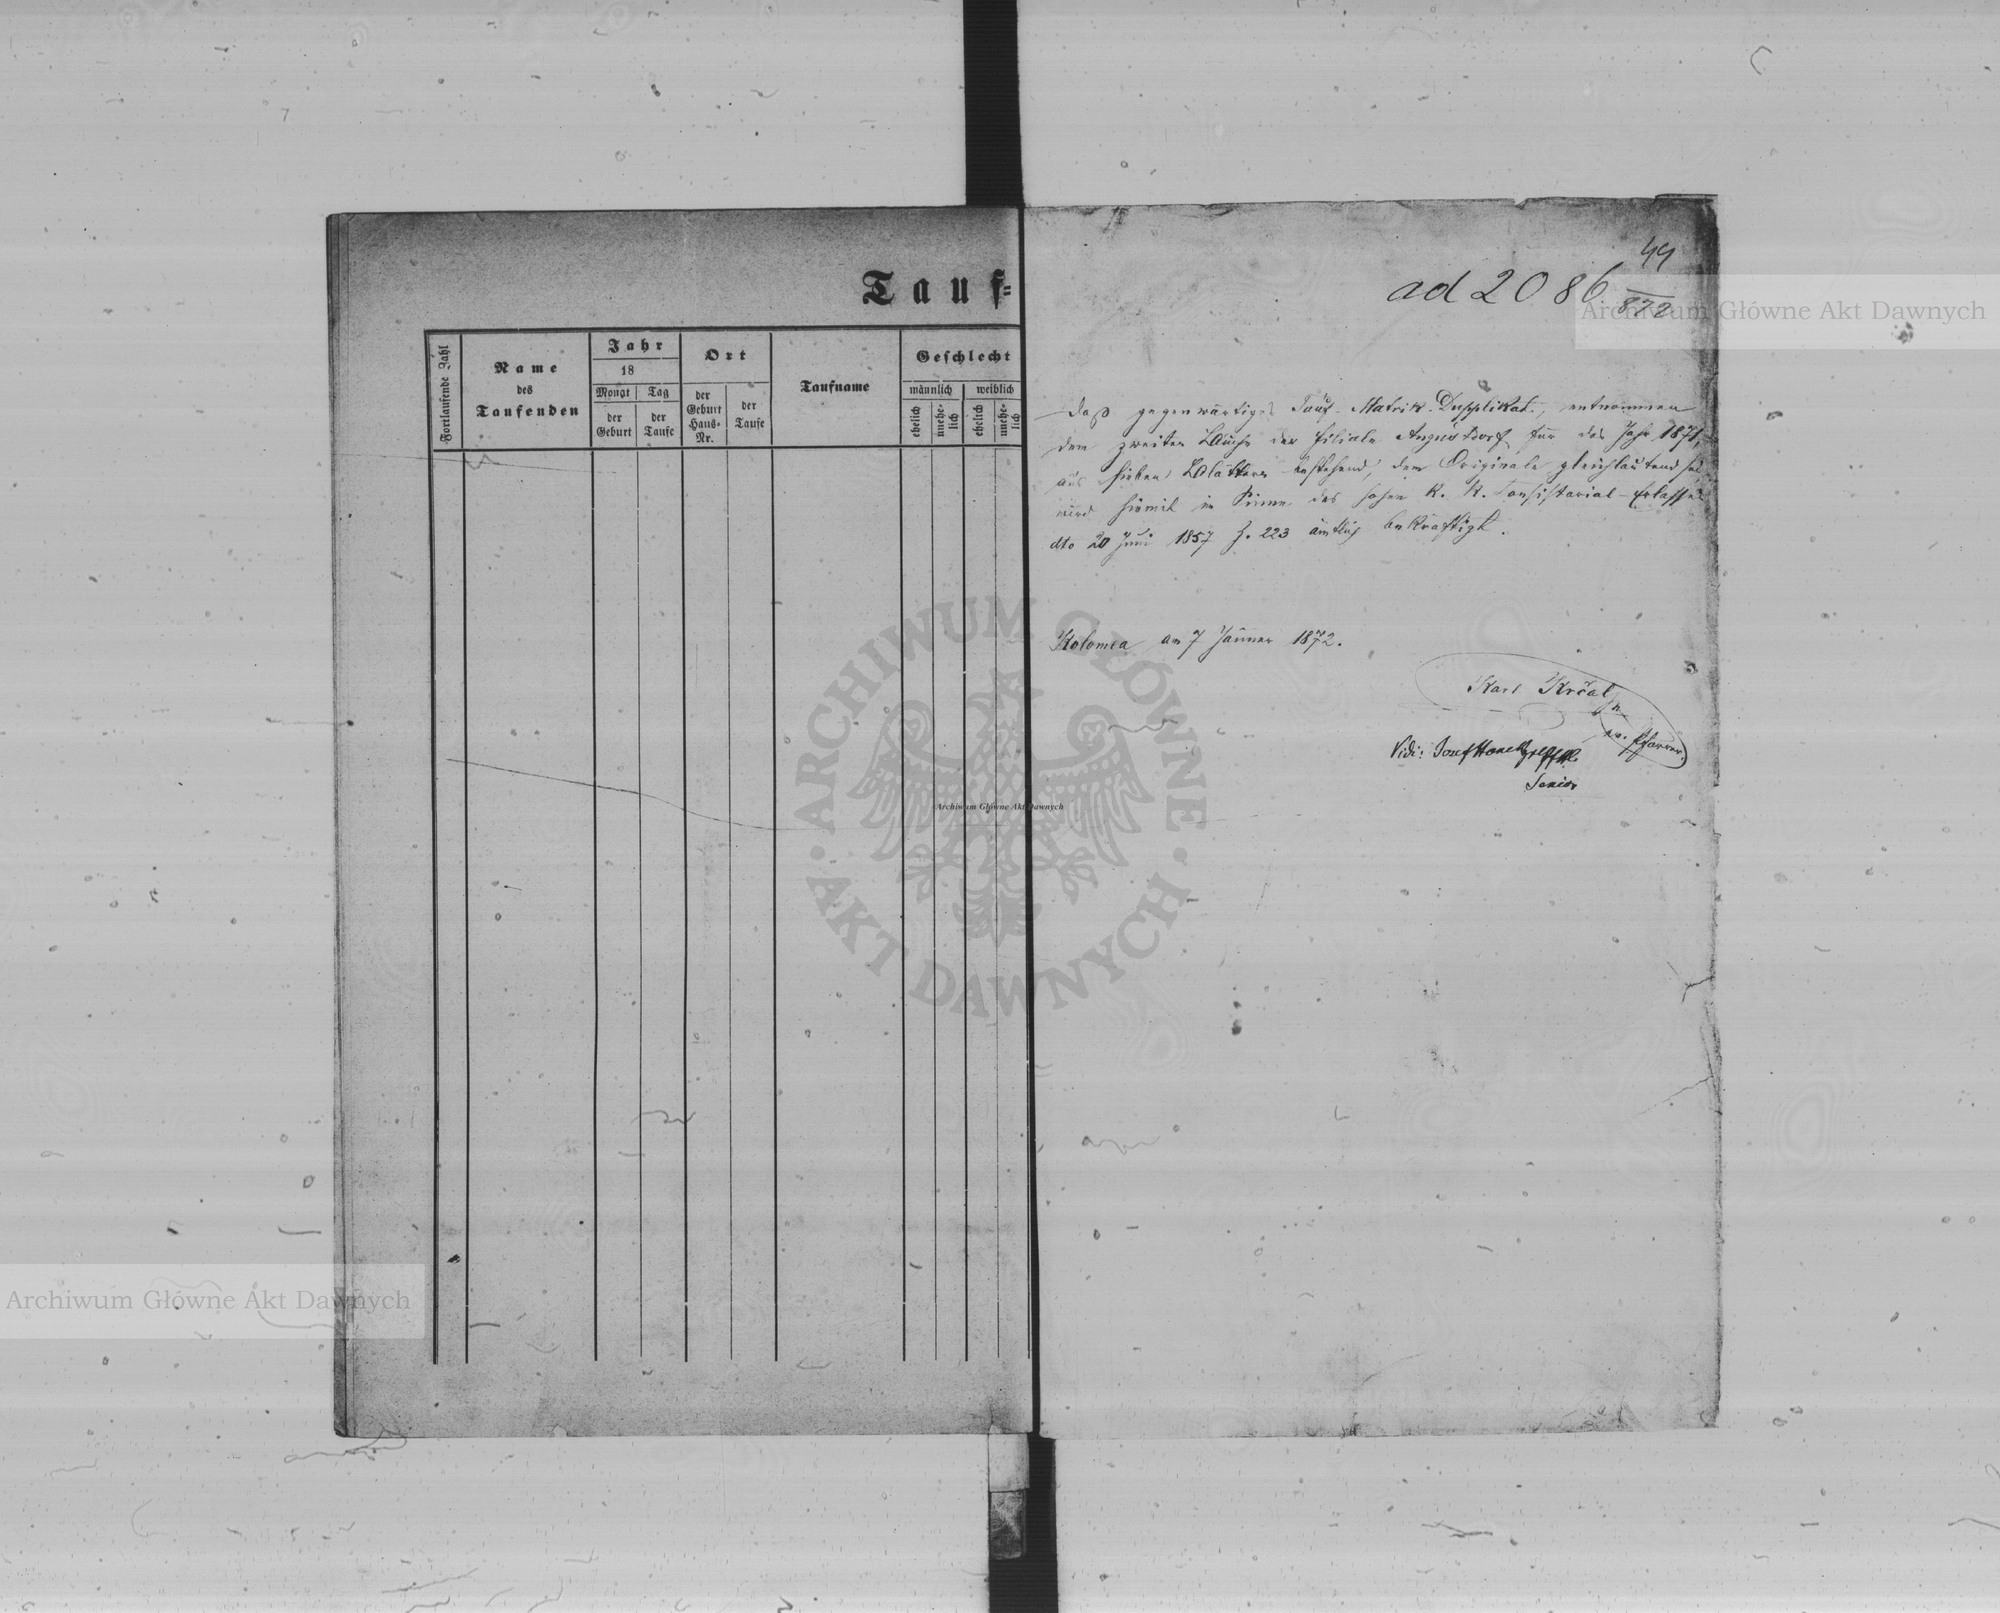 Tauf=
Fortlaufende Zahl
Name
des
Taufenden
Jahr
18
Monat
Tag
der
Geburt
der
Taufe
Ort
der
Geburt
Haus-
Nr.
der
Taufe
Taufname
Geschlecht
männlich
weiblich
ehelich
unehe-
lich
ehelich
unehe-
lich
44
ad 2086
872
Daß gegenwärtiges Tauf-Matrik-Dupplikat, entnommen
dem zweiten Buche der Filiale Augustdorf für das Jahr 1871,
aus sieben Blättern bestehend, dem Originale gleichlautend sei
wird hiemit im Sinne des hohen K. K. Consistorial-Erlasses
dto 20 Juni 1857 Z. 223 ämtlich bekräftigt.
Kolomea am 7 Jänner 1872.
Karl Krčal
ev. Pfarrer
Vidi: Josef
Senior
Archiwum Główne Akt Dawnych
ARCHIWUM GŁÓWNE
AKT DAWNYCH
Archiwum Główne Akt Dawnych
Archiwum Główne Akt Dawnych